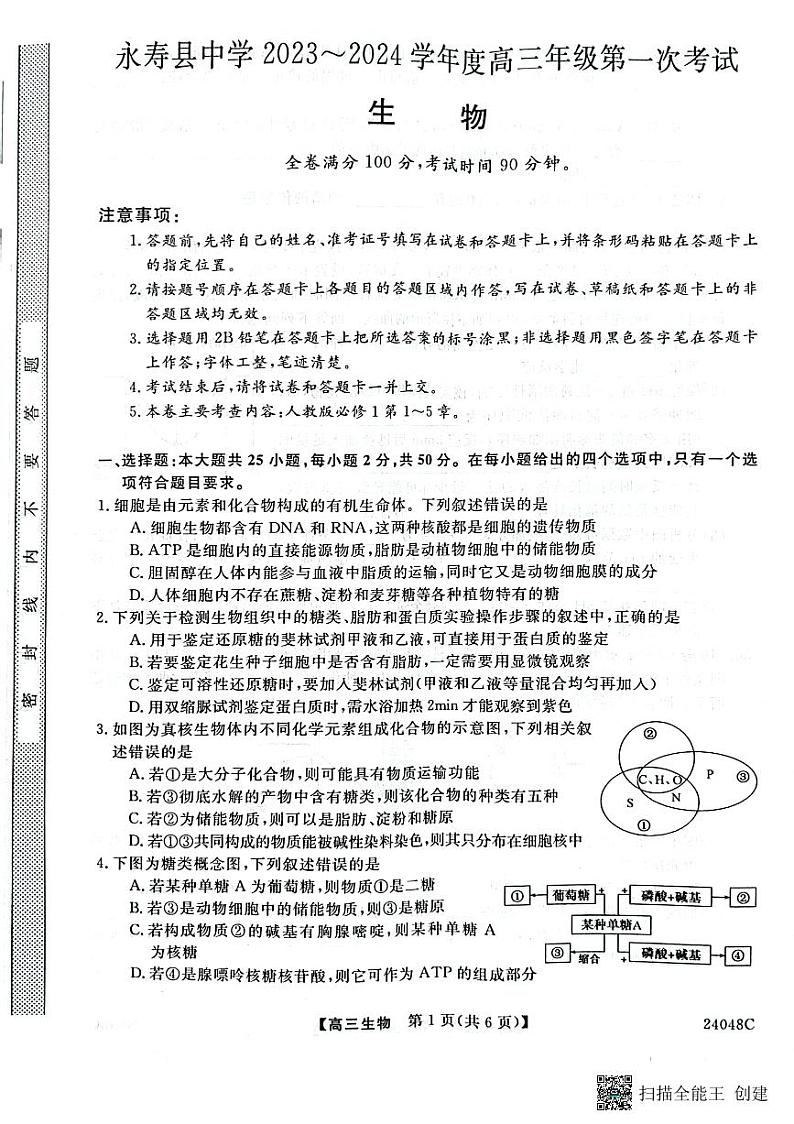 永寿县中学 2023～2024 学年度高三年级第一次考试
生 物
全卷满分 100 分,考试时间 90 分钟。
注意事项:
1. 答题前,先将自己的姓名、准考证号填写在试卷和答题卡上,并将条形码粘贴在答题卡上
的指定位置。
2. 请按题号顺序在答题卡上各题目的答题区域内作答,写在试卷、草稿纸和答题卡上的非
答题区域均无效。
3. 选择题用 2B 铅笔在答题卡上把所选答案的标号涂黑;非选择题用黑色签字笔在答题卡
上作答;字体工整,笔迹清楚。
4. 考试结束后,请将试卷和答题卡一并上交。
5. 本卷主要考查内容:人教版必修 1 第 1~5 章。
一、选择题:本大题共 25 小题,每小题 2 分,共 50 分。在每小题给出的四个选项中,只有一个选
项符合题目要求。
1. 细胞是由元素和化合物构成的有机生命体。下列叙述错误的是
A. 细胞生物都含有 DNA 和 RNA,这两种核酸都是细胞的遗传物质
B. ATP 是细胞内的直接能源物质,脂肪是动植物细胞中的储能物质
C. 胆固醇在人体内能参与血液中脂质的运输,同时它又是动物细胞膜的成分
D. 人体细胞内不存在蔗糖、淀粉和麦芽糖等各种植物特有的糖
2. 下列关于检测生物组织中的糖类、脂肪和蛋白质实验操作步骤的叙述中,正确的是
A. 用于鉴定还原糖的斐林试剂甲液和乙液,可直接用于蛋白质的鉴定
B. 若要鉴定花生种子细胞中是否含有脂肪,一定需要用显微镜观察
C. 鉴定可溶性还原糖时,要加入斐林试剂(甲液和乙液等量混合均匀再加入)
D. 用双缩脲试剂鉴定蛋白质时,需水浴加热 2min 才能观察到紫色
3. 如图为真核生物体内不同化学元素组成化合物的示意图,下列相关叙
述错误的是
A. 若①是大分子化合物,则可能具有物质运输功能
B. 若③彻底水解的产物中含有糖类,则该化合物的种类有五种
C. 若②为储能物质,则可以是脂肪、淀粉和糖原
D. 若①③共同构成的物质能被碱性染料染色,则其只分布在细胞核中
②
C、H、O
P
③
S
N
①
4. 下图为糖类概念图,下列叙述错误的是
A. 若某种单糖 A 为葡萄糖,则物质①是二糖
B. 若③是动物细胞中的储能物质,则③是糖原
C. 若构成物质②的碱基有胸腺嘧啶,则某种单糖 A
为核糖
D. 若④是腺嘌呤核糖核苷酸,则它可作为 ATP 的组成部分
① 葡萄糖 + + 磷酸+碱基 ②
某种单糖A
③ 缩合 + 磷酸+碱基 ④
【高三生物 第 1 页(共 6 页)】
24048C
密 封 线 内 不 要 答 题
扫描全能王 创建